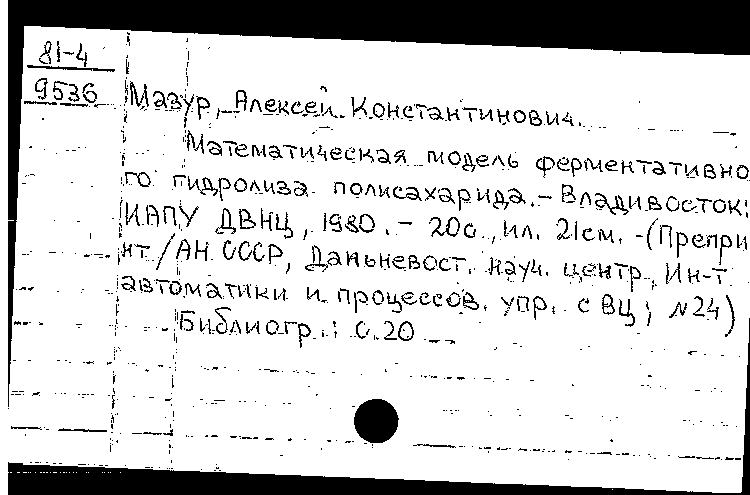 81-4
9536
Мазур, Алексей Константинович.
Математическая модель ферментативно
го гидролиза полисахарида. - Владивосток:
ИАПУ ДВНЦ, 1980. - 20с., ил. 21см. - (Препри
нт / АН СССР, Дальневост. науч. центр, Ин-т
автоматики и процессов. упр. с ВЦ; №24)
Библиогр.: с.20